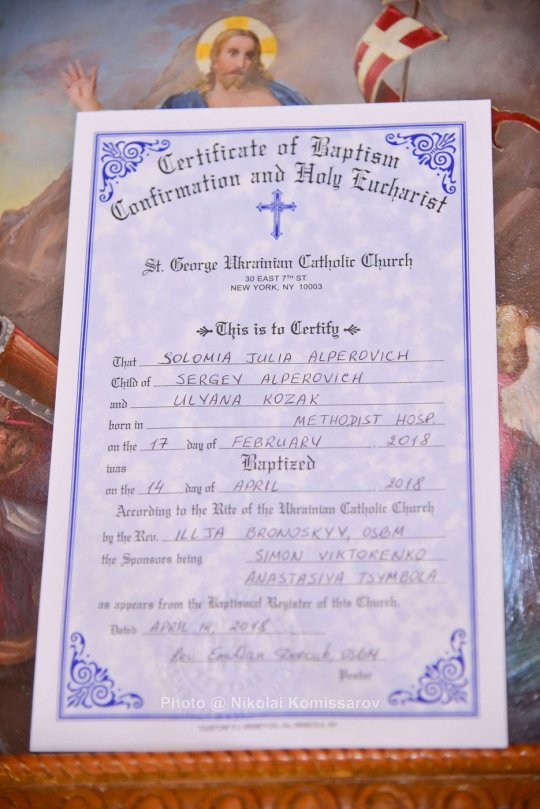 Certificate of Baptism
Confirmation and Holy Eucharist
St. George Ukrainian Catholic Church
30 EAST 7TH ST.
NEW YORK, NY 10003
This is to Certify
That SOLOMIA JULIA ALPEROVICH
Child of SERGEY ALPEROVICH
and ULYANA KOZAK
born in METHODIST HOSP.
on the 17 day of FEBRUARY 2018
was Baptized
on the 14 day of APRIL 2018
According to the Rite of the Ukrainian Catholic Church
by the Rev. ILLJA BRONOSKYY, OSBM
the Sponsors being SIMON VIKTORENKO
ANASTASIYA TSYMBOLA
as appears from the Baptismal Register of this Church.
Dated APRIL 14, 2018
Rev. Emilian Dorosh, OSBM
Pastor
Photo @ Nikolai Komissarov